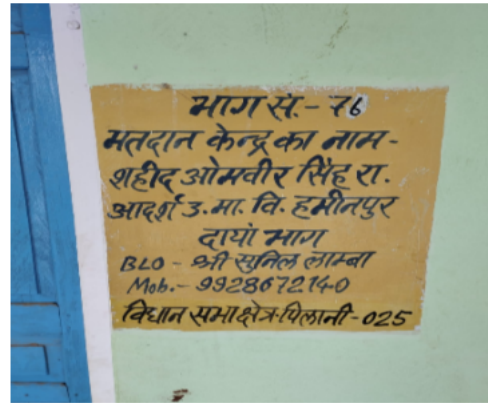 भाग सं.- 76
मतदान केन्द्र का नाम-
शहीद ओमवीर सिंह रा.
आदर्श उ. मा. वि. हमीनपुर
दायां भाग
BLO - श्री सुनिल लाम्बा
Mob.- 9928672140
विधान सभा क्षेत्र-पिलानी-025